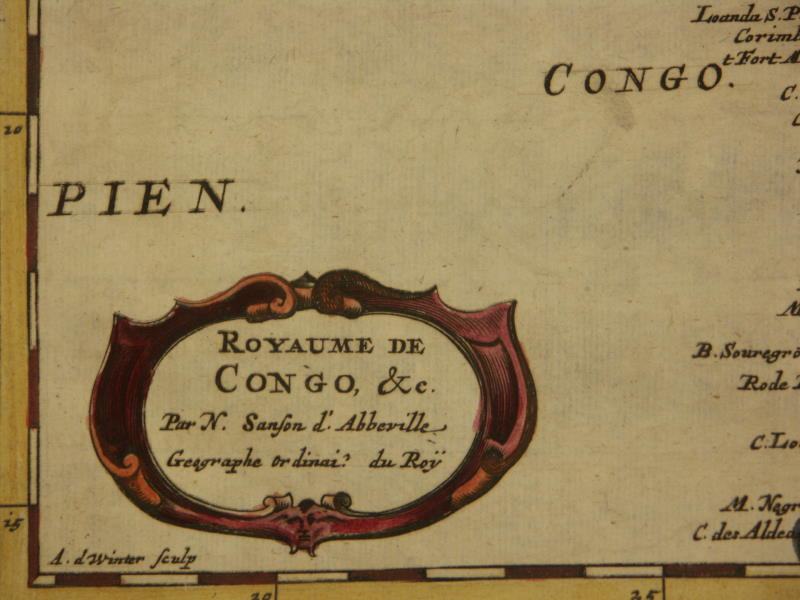 Loanda S. P
Corimb
t Fort
CONGO.
C.
20
PIEN.
ROYAUME DE
CONGO, &c.
Par N. Sanson d'Abbeville
Geographe ordinai.^e du Roÿ
B. Souregro
Rode
C. Lo
M. Negr
C. des Aldea
15
A. d Winter sculp
20
25